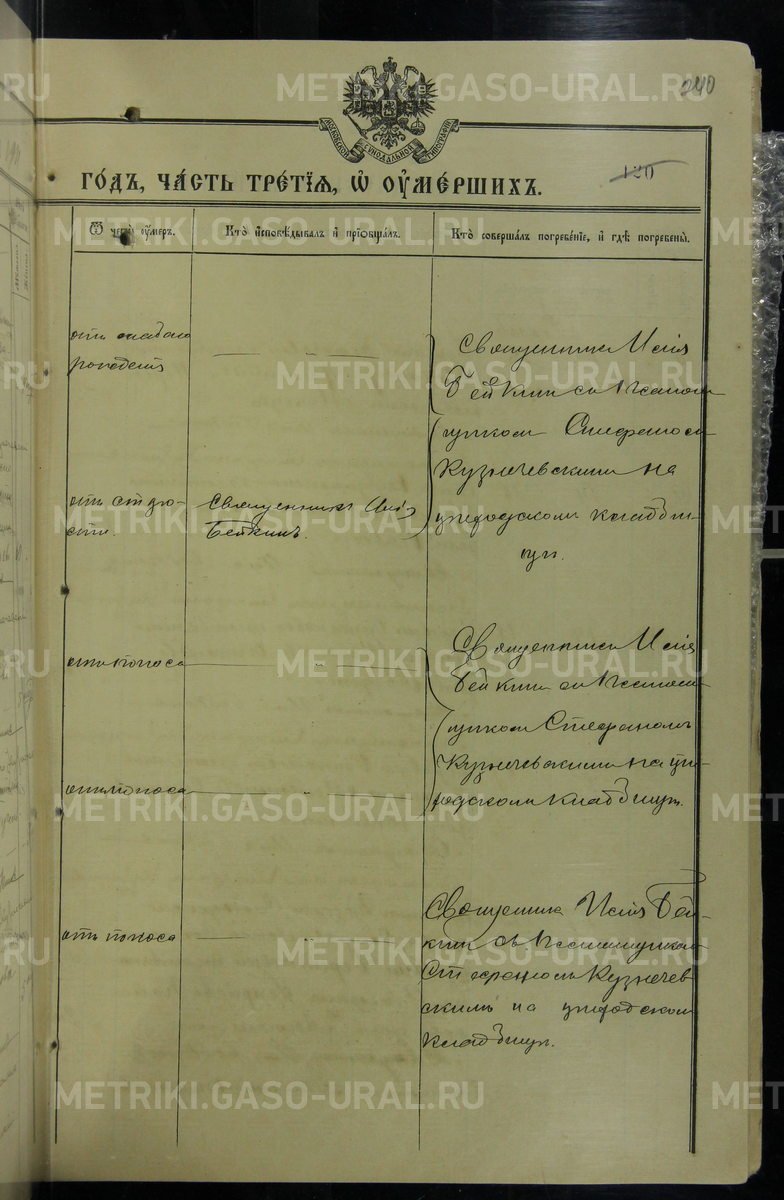 240
МОСКОВСКОЙ СѴНОДАЛЬНОЙ ТИПОГРАФІИ
ГО́ДЪ, ЧА́СТЬ ТРЕ́ТЇѦ, Ѡ҆ ОУ҆МЕ́РШИХЪ.
Ѿ чегѡ̀ оу҆́меръ.
Кто̀ и҆сповѣ́дывалъ и҆ прїѡбща́лъ.
Кто̀ соверша́лъ погребе́нїе, и҆ гдѣ̀ погребены̀.
отъ слабаго
рожденія
Священникъ Илія
Бейкинъ съ псалом-
щикомъ Стефаномъ
Кузнечевскимъ на
приходскомъ кладби-
щѣ.
отъ старо-
сти.
Священникъ Илія
Бейкинъ.
отъ поноса
Священникъ Илія
Бейкинъ съ псалом-
щикомъ Стефаномъ
Кузнечевскимъ на при-
ходскомъ кладбищѣ.
отъ поноса
отъ поноса
Священникъ Илія Бей-
кинъ съ псаломщикомъ
Стефаномъ Кузнечев-
скимъ на приходскомъ
кладбищѣ.
METRIKI.GASO-URAL.RU